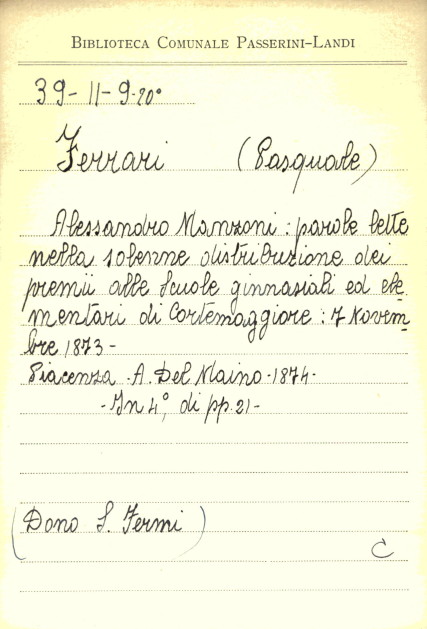 BIBLIOTECA COMUNALE PASSERINI-LANDI
39-11-9.20°
Ferrari (Pasquale)
Alessandro Manzoni: parole lette
nella solenne distribuzione dei
premii alle Scuole ginnasiali ed ele
mentari di Cortemaggiore: 7 Novem-
bre 1873-
Piacenza - A. Del Maino - 1874 -
- In 4°, di pp. 21-
(Dono S. Fermi)
C